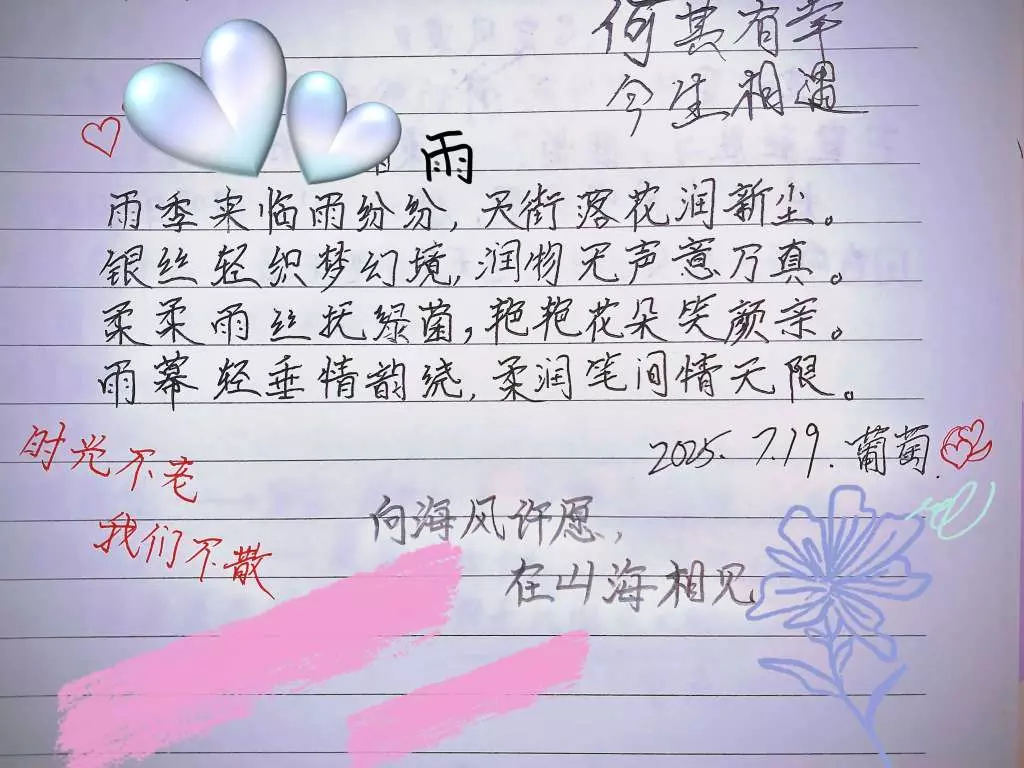 何其有幸
今生相遇
雨
雨季来临雨纷纷,天街落花润新尘。
银丝轻织梦幻境,润物无声意乃真。
柔柔雨丝抚绿菌,艳艳花朵笑颜亲。
雨幕轻垂情韵绕,柔润笔间情无限。
2025.7.19.葡萄.
时光不老
我们不散
向海风许愿,
在山海相见